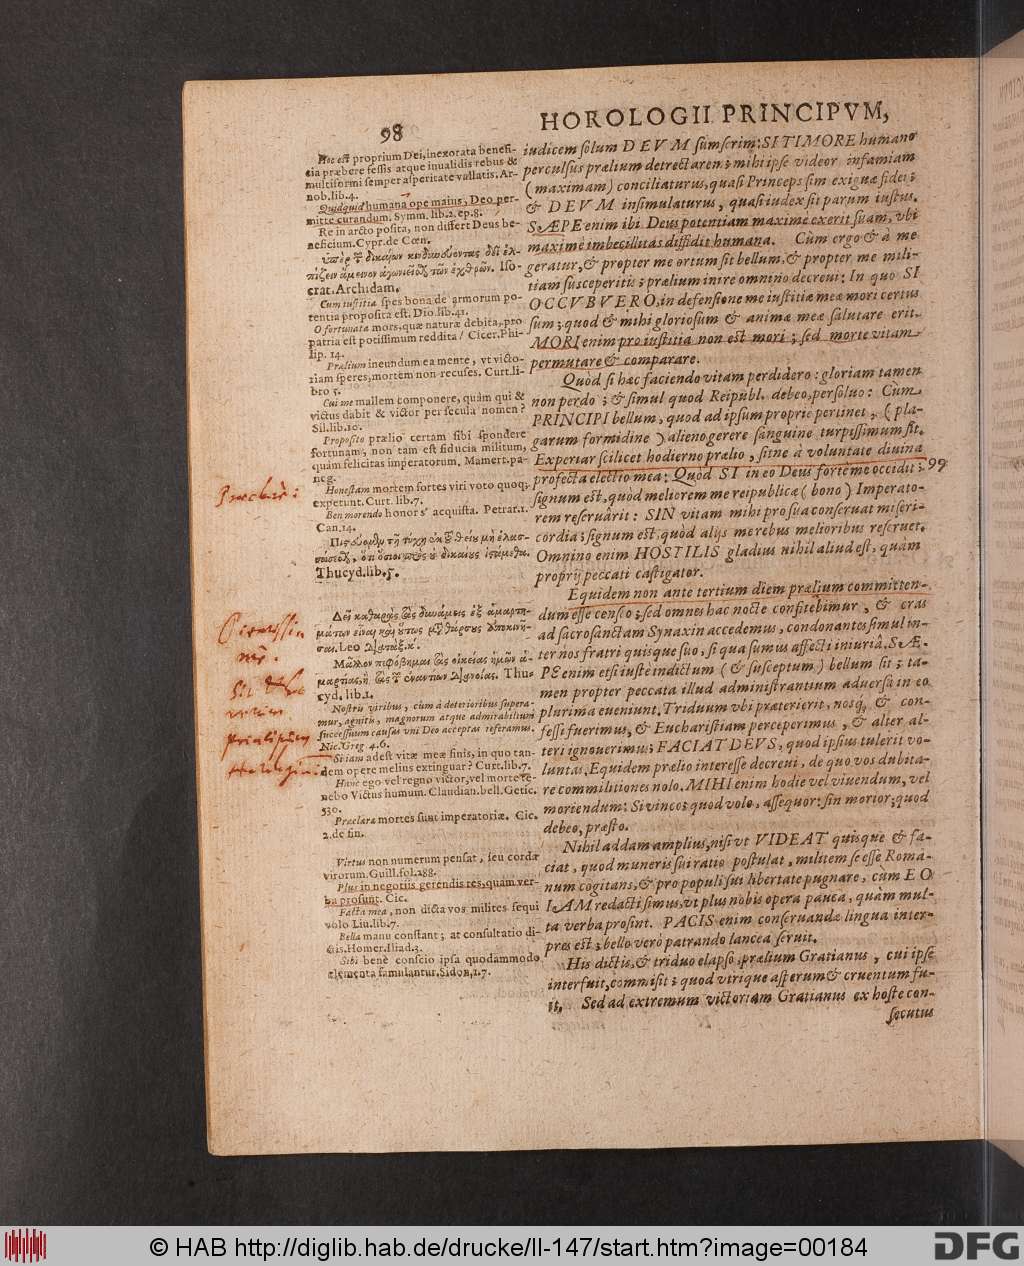 98
HOROLOGII PRINCIPVM,
Hoc est proprium Dei, inexorata benefi-
cia præbere fessis atque inualidis rebus &
multiformi semper asperitate vallatis. Ar-
nob. lib. 4.
Quidquid humana ope maius, Deo per-
mitte curandum. Symm. lib. 2. ep. 8.
Re in arcto posita, non differt Deus be-
neficium. Cypr. de Cœn.
crat. Archidam.
Cum iustitia spes bona de armorum po-
tentia proposita est. Dio. lib. 41.
O fortunata mors, quæ naturæ debita, pro
patria est potissimum reddita! Cicer. Phi-
lip. 14.
Prælium ineundum ea mente, vt victo-
riam speres, mortem non recuses. Curt. li-
bro 5.
Cui me mallem componere, quàm qui &
victus dabit & victor per secula nomen?
Sil. lib. 10.
Proposito prælio certam sibi spondere
fortunam, non tam est fiducia militum,
quàm felicitas imperatorum. Mamert. pa-
neg.
Honestam mortem fortes viri voto quoq;
expetunt. Curt. lib. 7.
Ben morendo honor s' acquista. Petrar. 1.
Can. 14.
Thucyd. lib. 5.
Præclarè:
Δεῖ καθαρὰς τὰς δυνάμεις ἐξ ἁμαρτη-
μάτων εἶναι καὶ οὕτως
Μᾶλλον πεφόβημαι τὰς οἰκείας ἡμῶν ἁ-
μαρτίας, ἢ τὰς τ̃ ἐναντίων διανοίας. Thu-
cyd. lib. 1.
Nostris viribus, cùm à deterioribus supera-
mur, agnitis, magnorum atque admirabilium
successuum causas vni Deo acceptas referamus.
Nic. Greg. 4. 6.
Si iam adest vitæ meæ finis, in quo tan-
dem opere melius extinguar? Curt. lib. 7.
Hanc ego vel regno victor, vel morte te-
nebo Victus humum. Claudian. bell. Getic.
530.
Præclara mortes sunt imperatoriæ. Cic.
2. de fin.
Virtus non numerum pensat, seu corda
virorum. Guill. fol. 288.
Plus in negotiis gerendis res, quàm ver-
ba prosunt. Cic.
Facta mea, non dicta vos milites sequi
volo Liu. lib. 7.
Bella manu constant; at consultatio di-
ctis. Homer. Iliad. 3.
Sibi benè conscio ipsa quodammodo
elementa famulantur. Sidon. 1. 7.
iudicem solum DEVM sumserim: SI TIMORE humano
perculsus prælium detrectarem; mihi ipse videor infamiam
(maximam) conciliaturus, quasi Princeps sim exiguæ fidei;
& DEVM insimulaturus, quasi iudex sit parum iustus.
SÆPE enim ibi Deus potentiam maximè exerit suam, vbi
maximè imbecillitas diffidit humana. Cùm ergo & à me
geratur, & propter me ortum sit bellum, & propter me mili-
tiam susceperitis; prælium inire omnino decreui: In quo SI
OCCVBVERO, in defensione me iustitiæ meæ mori certus
sum; quod & mihi gloriosum & animæ meæ salutare erit.
MORI enim pro iustitia non est mori; sed morte vitam
permutare & comparare.
Quòd si hæc faciendo vitam perdidero: gloriam tamen
non perdo; & simul quod Reipubl. debeo, persoluo: Cùm
PRINCIPI bellum, quod ad ipsum propriè pertinet, (pla-
garum formidine) alieno gerere sanguine turpissimum sit.
Experiar scilicet hodierno prælio, sitne à voluntate diuina
profecta electio mea: Quòd SI in eo Deus fortè me occidit; 99
signum est, quòd meliorem me reipublicæ (bono) Imperato-
rem reseruârit: SIN vitam mihi pro sua conseruat miseri-
cordia; signum est, quòd alijs me rebus melioribus reseruet.
Omnino enim HOSTILIS gladius nihil aliud est, quàm
proprij peccati castigator.
Equidem non ante tertium diem prælium committen-
dum esse censeo; sed omnes hac nocte confitebimur, & cras
ad sacrosanctam Synaxin accedemus, condonantes simul in-
ter nos fratri quisque suo, si qua sumus affecti iniuriâ. SÆ-
PE enim etsi iustè indictum (& susceptum) bellum sit; ta-
men propter peccata illud administrantium aduersa in eo
plurima eueniunt. Triduum vbi præterierit, nosq; & con-
fessi fuerimus, & Eucharistiam perceperimus, & alter al-
teri ignouerimus; FACIAT DEVS, quod ipsius tulerit vo-
luntas. Equidem prælio interesse decreui, de quo vos dubita-
re commilitiones nolo. MIHI enim hodie vel viuendum, vel
moriendum: Si vinco; quod volo, assequor: sin morior; quod
debeo, præsto.
Nihil addam amplius, nisi vt VIDEAT quisque & fa-
ciat, quod muneris sui ratio postulat, militem se esse Roma-
num cogitans, & pro populi sui libertate pugnare, cùm EO
IAM redacti simus, vt plus nobis opera pauca, quàm mul-
ta verba prosint. PACIS enim conseruandæ lingua inter-
pres est; bello verò patrando lancea seruit.
His dictis, & triduo elapso, prælium Gratianus, cui ipse
interfuit, commisit; quod vtrique asperum & cruentum fu-
it. Sed ad extremum victoriam Gratianus ex hoste con-
secutus
© HAB http://diglib.hab.de/drucke/ll-147/start.htm?image=00184
DFG